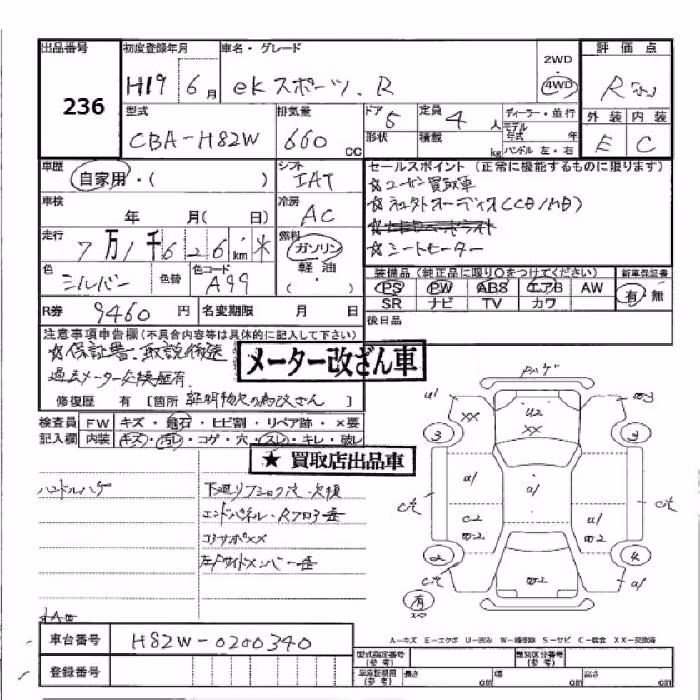 出品番号 初度登録年月 車名・グレード 2WD 評価点
236 H19 6月 ekスポーツ.R 4WD R
型式 排気量 ドア 定員 ディーラー・並行 外装 内装
CBA-H82W 660cc 5 4人 モデル年式 年 E C
形状 積載 kg ハンドル 左・右
車歴 自家用・( ) シフト IAT セールスポイント(正常に機能するものに限ります)
☆ユーザー買取車
車検 年 月( 日) 冷房 AC
走行 7万1千626km 燃料 ガソリン 軽油 ( )
☆シートヒーター
色 シルバー 色替 色コード A99
装備品(純正品に限り○をつけてください) 新車保証書
PS PW ABS エアB AW 有・無
SR ナビ TV カワ
R券 9460円 名変期限 月 日 後日品
注意事項申告欄(不具合内容等は具体的に記入して下さい)
☆保証書、取説後送
過去メーター交換歴有
メーター改ざん車
修復歴 有 [箇所 証明物欠の為改ざん]
検査員記入欄 FW キズ・飛石・ヒビ割・リペア跡・×要
内装 キズ・汚レ・コゲ・穴・スレ・キレ・破レ
★ 買取店出品車
ハンドルハゲ
エンドパネル・Rフロア
コアサポXX
左Fサイドメンバー
U2
XX
XX
A1
A1
C2
W2
U1
W2
W2
A1
3
3
2
4
有
A-キズ E-エクボ U-凹み W-補修跡 S-サビ C-腐食 XX-交換済
車台番号 H82W-0200340
型式指定番号(参考) 類別区分番号(参考)
登録番号
長さ cm 幅 cm 高さ cm